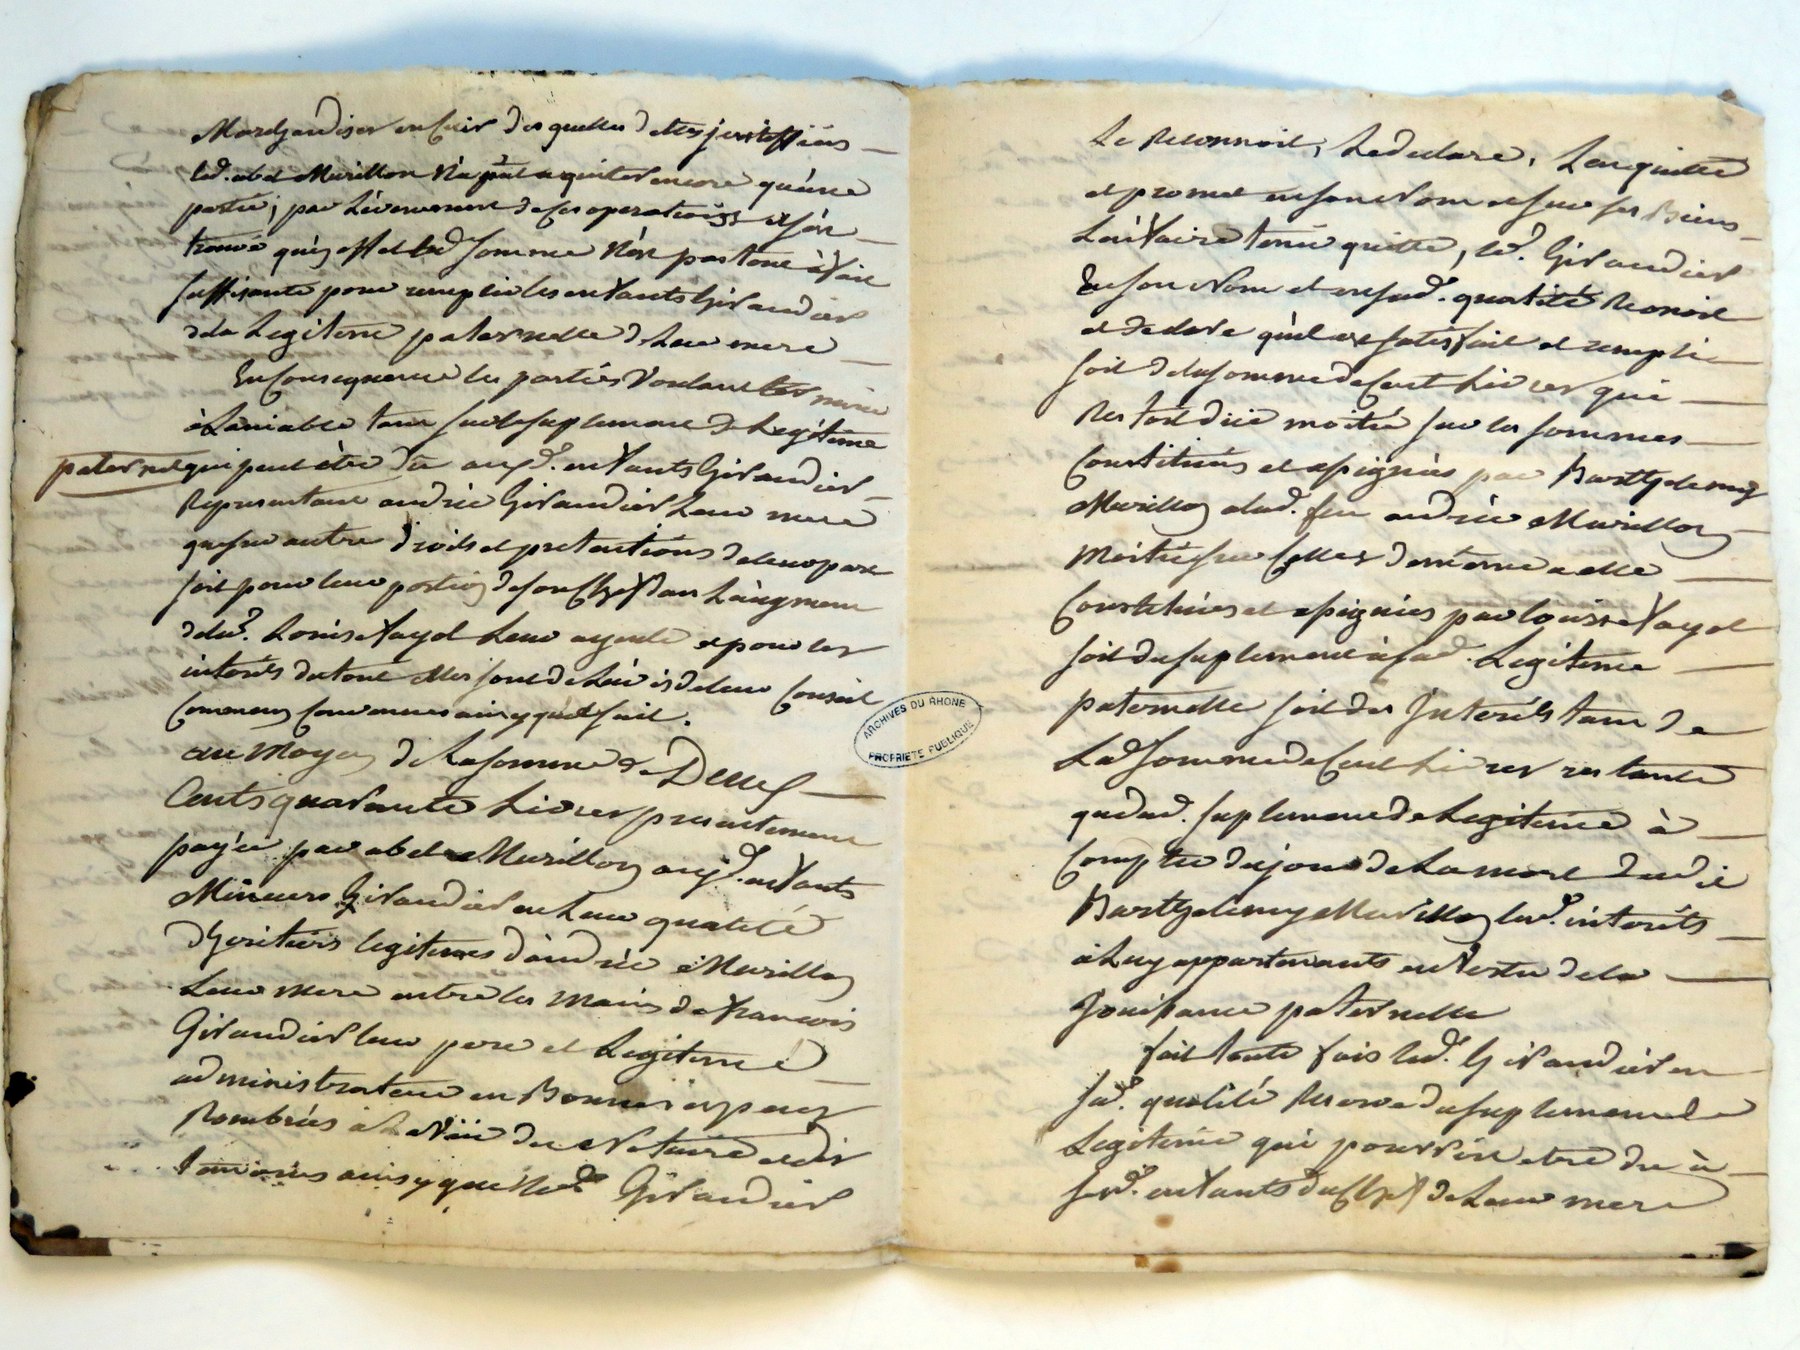 Marchandises en Cuir des quelles dettes justiffiées
led. abel Murillon N'a pût acquitter encore qu'une
partie; par L'evenement de ses operations il s'en
trouvé qu'en effet lad. somme N'est pas tout à fait
suffisante pour remplir les enfants Girandier
de la Legitime paternelle de Leur mere
En Consequence les parties Voulant terminer
à L'amiable tant sur le suplement de Legitime
paternel qui peut être du auxd. enfants Girandier
Representant andrée Girandier Leur mere
que sur autre droits et pretentions de leur part
soit pour leur portion de son Chef dans L'augment
de lad. Louise fayol Leur ayeule et pour les
interêts du tout elles sont de L'avis de leur Conseil
Convenus ainsy que suit.
au Moyen de La somme de Deux
Cents quarante Livres presentement
payée par abel Murillon auxd. enfants
Mineurs Girandier en Leur qualité
d'heritiers legitimes d'andrée Murillon
Leur mere entre les mains de francois
Girandier leur pere et Legitime
administrateur en Bonnes especes
Nombrées à La Vüe du Notaire et des
temoins ainsy que led. Girandier
Le Reconnoit, Le declare, L'en quitte
et promet en son Nom et sur ses Biens
L'en faire tenir quitte, led. Girandier
En son Nom et en sad. qualité Reconoit
et declare qu'il est satisfait et rempli
soit de la somme de Cent Livres qui
Restoit düe moitié sur les sommes
Constituées et assignées par Barthelemy
Murillon alad. feu andrée Murillon
Moitié sur Celles de même a elle
Constituées et assignées par Louise fayol
soit du suplement à sad. Legitime
paternelle soit des Interêts tant de
Lad. somme de Cent Livres restante
que dud. suplement de Legitime à
Compter du jour de La mort dudit
Barthelemy Murillon lesd. interêts
à Luy appartenants en Vertu de la
Jouissance paternelle
fait toute fois led. Girandier en
sad. qualité Reserve du suplement de
Legitime qui pourroit etre du à
sesd. enfants du Chef de Leur mere
ARCHIVES DU RHONE
PROPRIETE PUBLIQUE